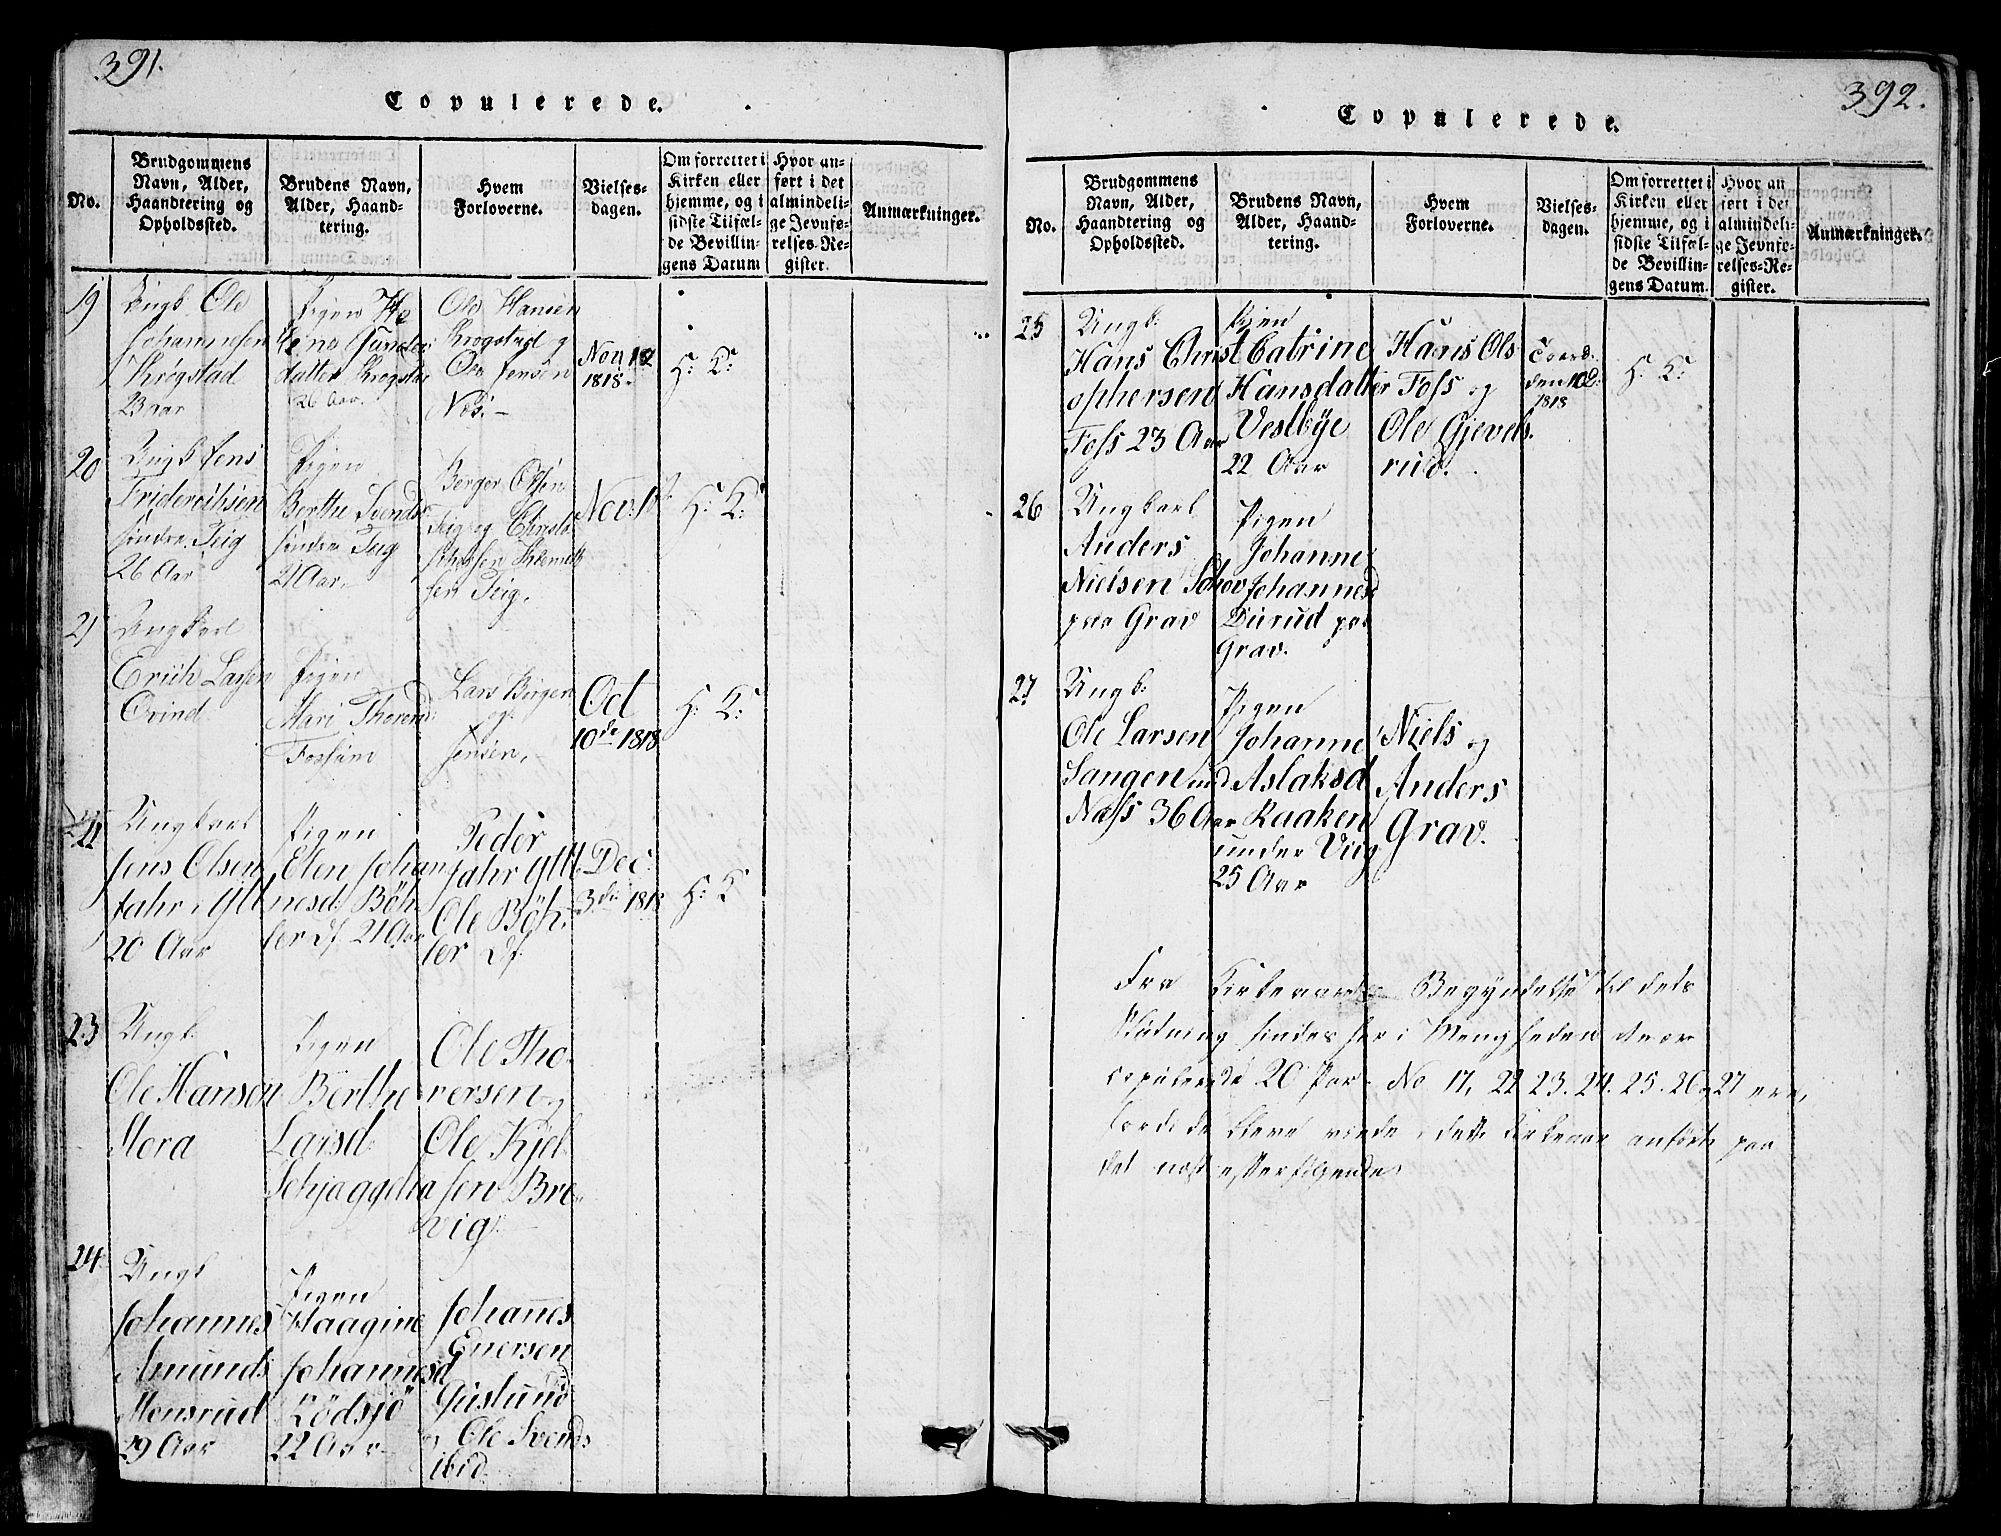 391.
Copulerede.
No.
Brudgommens
Navn, Alder,
Haandtering og
Opholdssted.
Brudens Navn,
Alder, Haand-
tering.
Hvem
Forloverne.
Vielses-
dagen.
Om forrettet i
Kirken eller
hjemme, og i
sidste Tilfæl-
de Bevillin-
gens Datum
Hvor an-
ført i det
almindeli-
ge Jevnfø-
relses-Re-
gister.
Anmærkninger.
19
Ungk. Ole
Johannesen
Krogstad
Pigen He
lene Gunders
datter Krogstad
26 Aar.
Ole Hansen
Krogstad og
Ole Jensen
Næs.
Nov 12
1818.
H: K:
20
Ungk Jens
Friderichsen
søndre Teig
26 Aar
Pigen
Berthe Svends
søndre Teig
21 Aar.
Berger Olsen
Teig og Christo
sen Teig.
Nov. 1
H: K:
21
Ungkarl
Erich Larsen
Ovind
Pigen
Mari Thorend
Fossum
Lars Birger
og
Jensen.
Oct
10de 1818
H: K:
22
Ungkarl
Jens Olsen
Jahr i Ytt
20 Aar
Pigen
Elen Johan
nesd: Böh
ler Df 21 Aar
Peder
Jahr Ytt
Ole Böh
ler Df
Dec:
3die 1818
H: K
23
Ungk.
Ole Hansen
Mora
Pigen
Berthe
Larsd
Schjaggesta
Ole Tho
rersen og
Ole Kjel
sen Bre
vig.
24.
Ungk
Johannes
Amunds
Monsrud
29 Aar
Pigen
Haagine
Johannesd
Rödsjö
22 Aar
Johannes
Enersen
Guslund
og Ole Svends
ibid
392.
Copulerede.
No.
Brudgommens
Navn, Alder,
Haandtering og
Opholdssted.
Brudens Navn,
Alder, Haand-
tering.
Hvem
Forloverne.
Vielses-
dagen.
Om forrettet i
Kirken eller
hjemme, og i
sidste Tilfæl-
de Bevillin-
gens Datum.
Hvor an
ført i det
almindeli-
ge Jevnfø-
relses-Re-
gister.
Anmærkninger.
25
Ungk:
Hans Christ
ophersen
Foss 23 Aar
Pigen
Catrine
Hansdatter
Vestbÿe
22 Aar
Hans Ols
Foss og
Ole Gjevels
rud.
den 10 D:
1818
H: K:
26
Ungkarl
Anders
Nielsen Schov
paa Grav
Pigen
Johanne
Johannesd
Durud paa
Grav.
27
Ungk:
Ole Larsen
Sangen und
Næss 36 Aar
Pigen
Johanne
Aslaksd
Raaken
under Viig
25 Aar
Niels og
Anders
Grav.
Fra Kirkeaarets Begyndelse til dets
Slutning findes her i Menigheden at være
copulerede 20 Par. No 17, 22 23. 24. 25. 26 og 27 ere,
fordi de bleve viede i dette Kirkeaar anførte paa
det næst efterfølgende